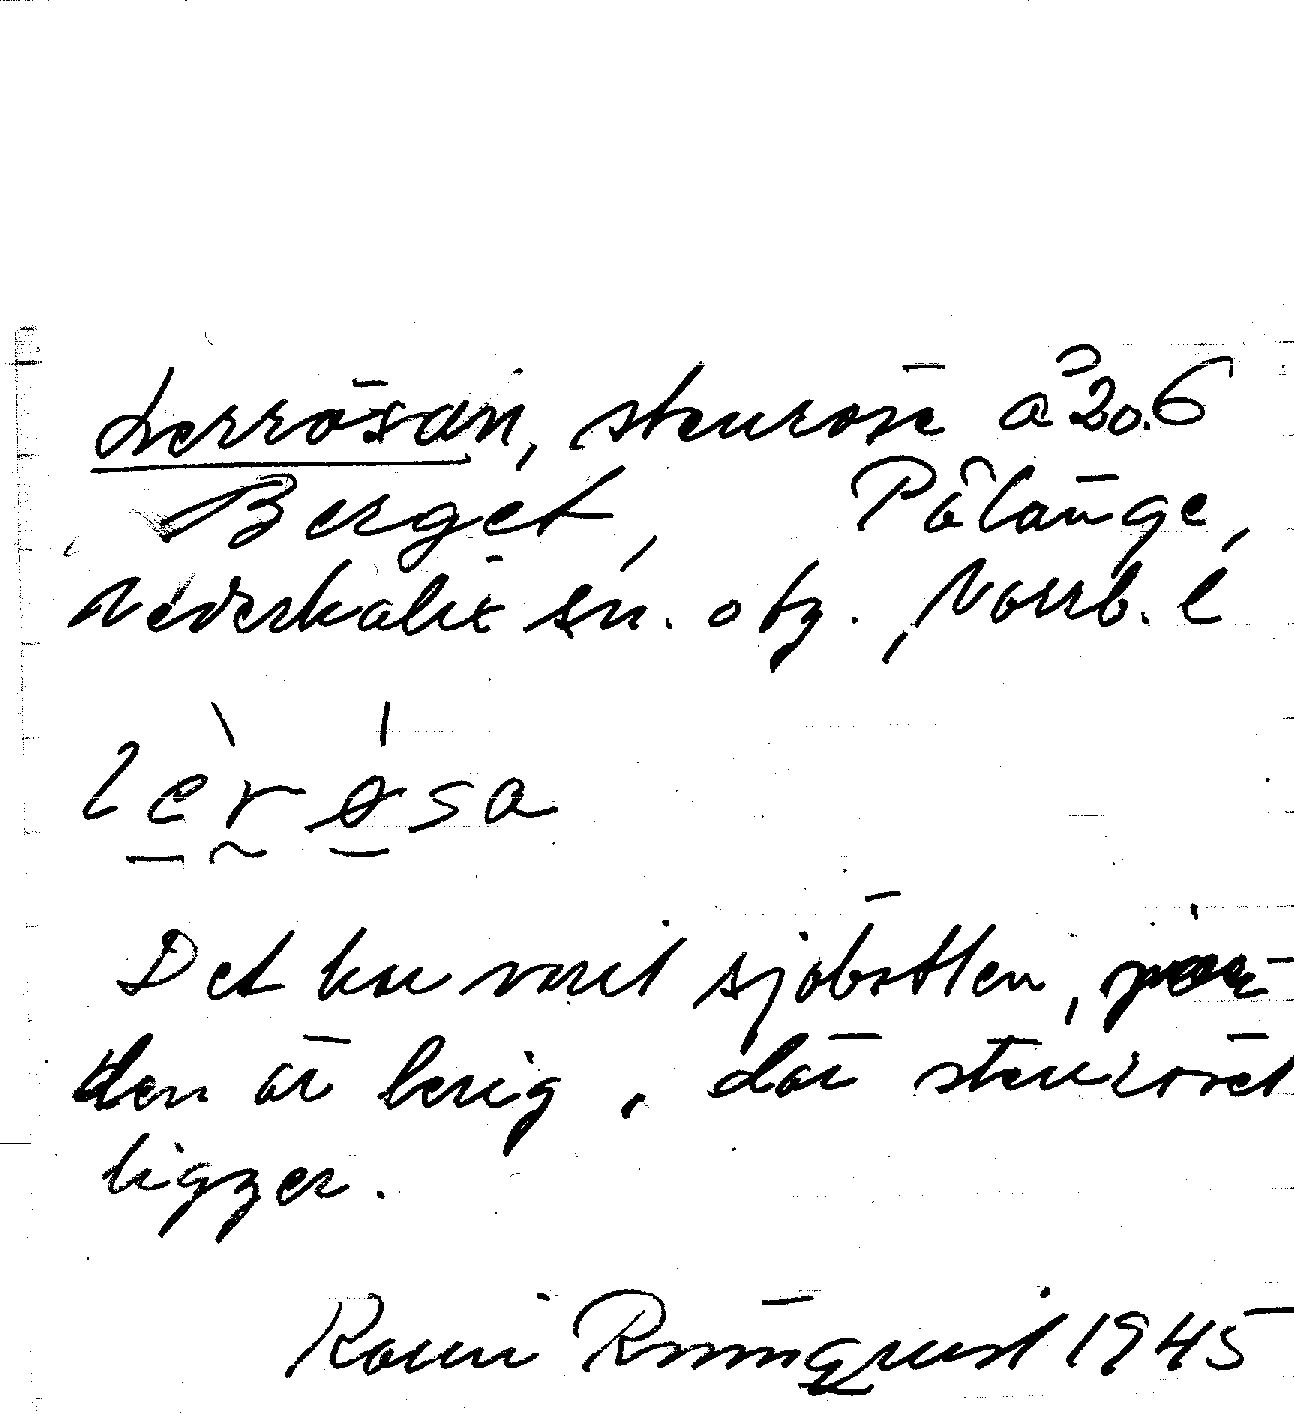 Lerrösan, stenröse å 20.6
Berget, Pålänge,
Nederkalix sn. o tg., Norrb. l
lèrǿsa
Det har varit sjöbotten,
den är lerig, där stenröset
ligger.
Rönnquist 1945